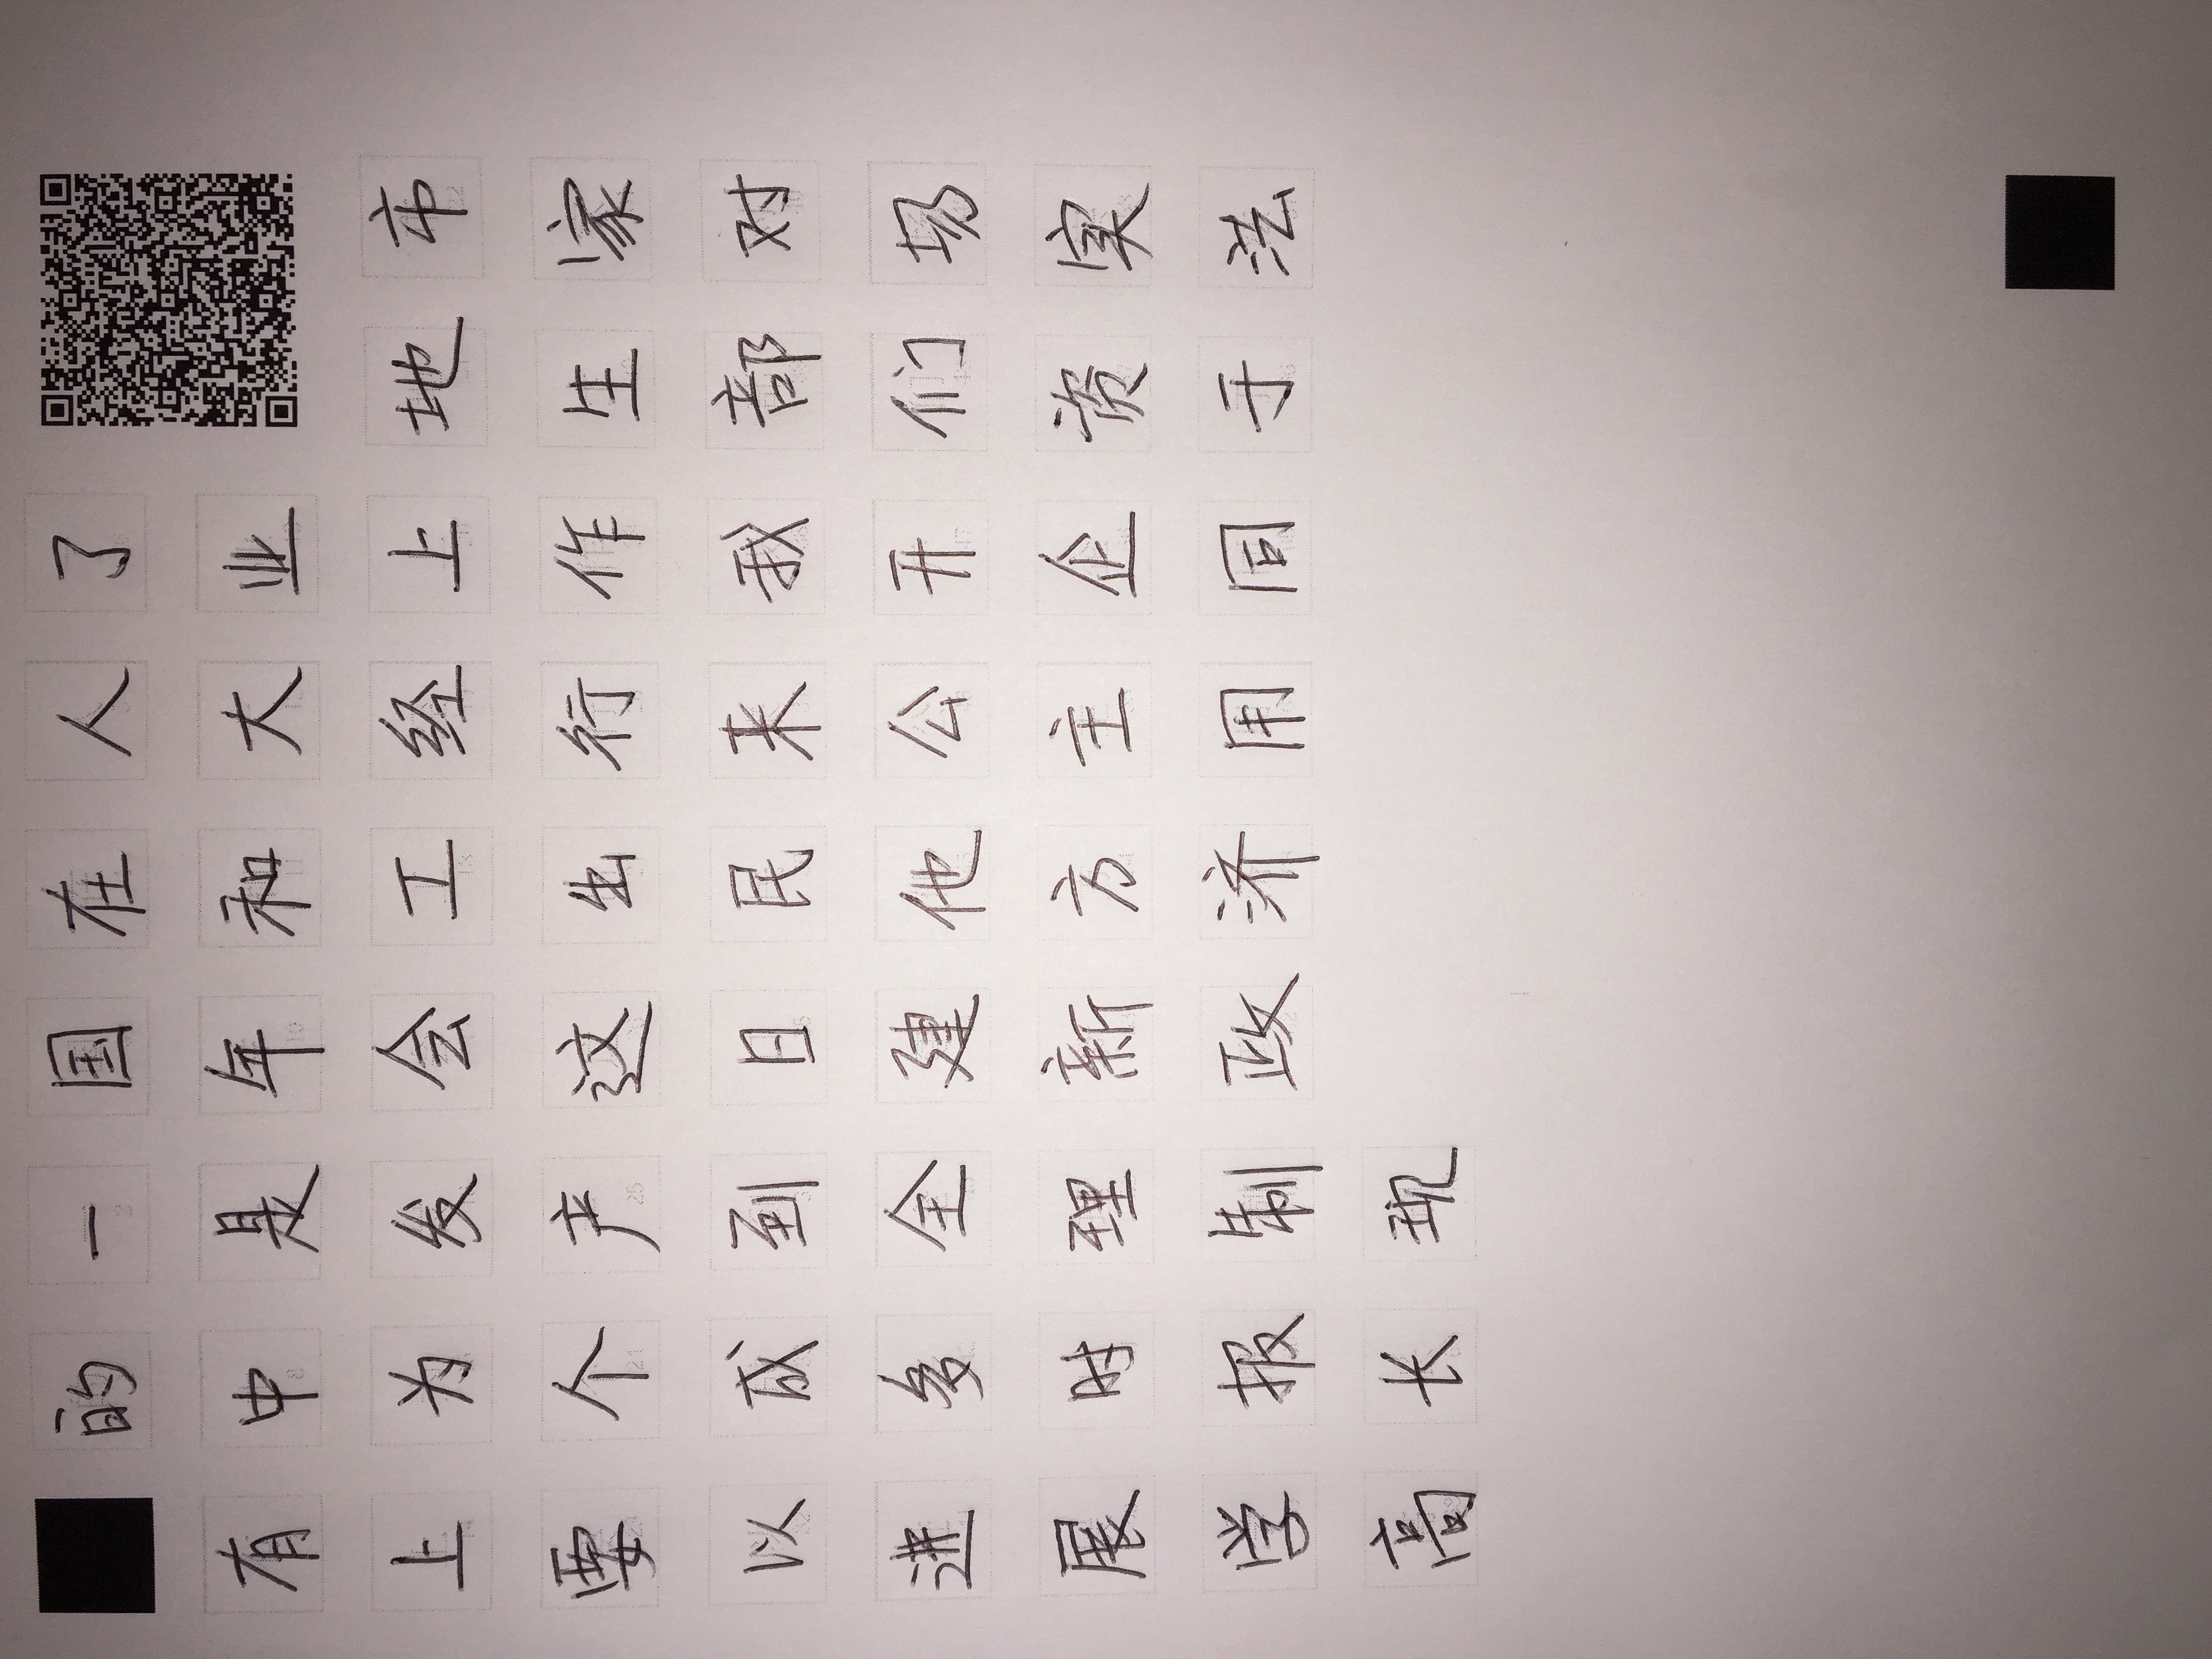 的一国在人了
有中是年和大业
上为发会工经上地市
要个产这出行作生家
以成到日民来我部对
进多全建他公开们场
展时理新方主企资实
学报制政济用同于法
高长现